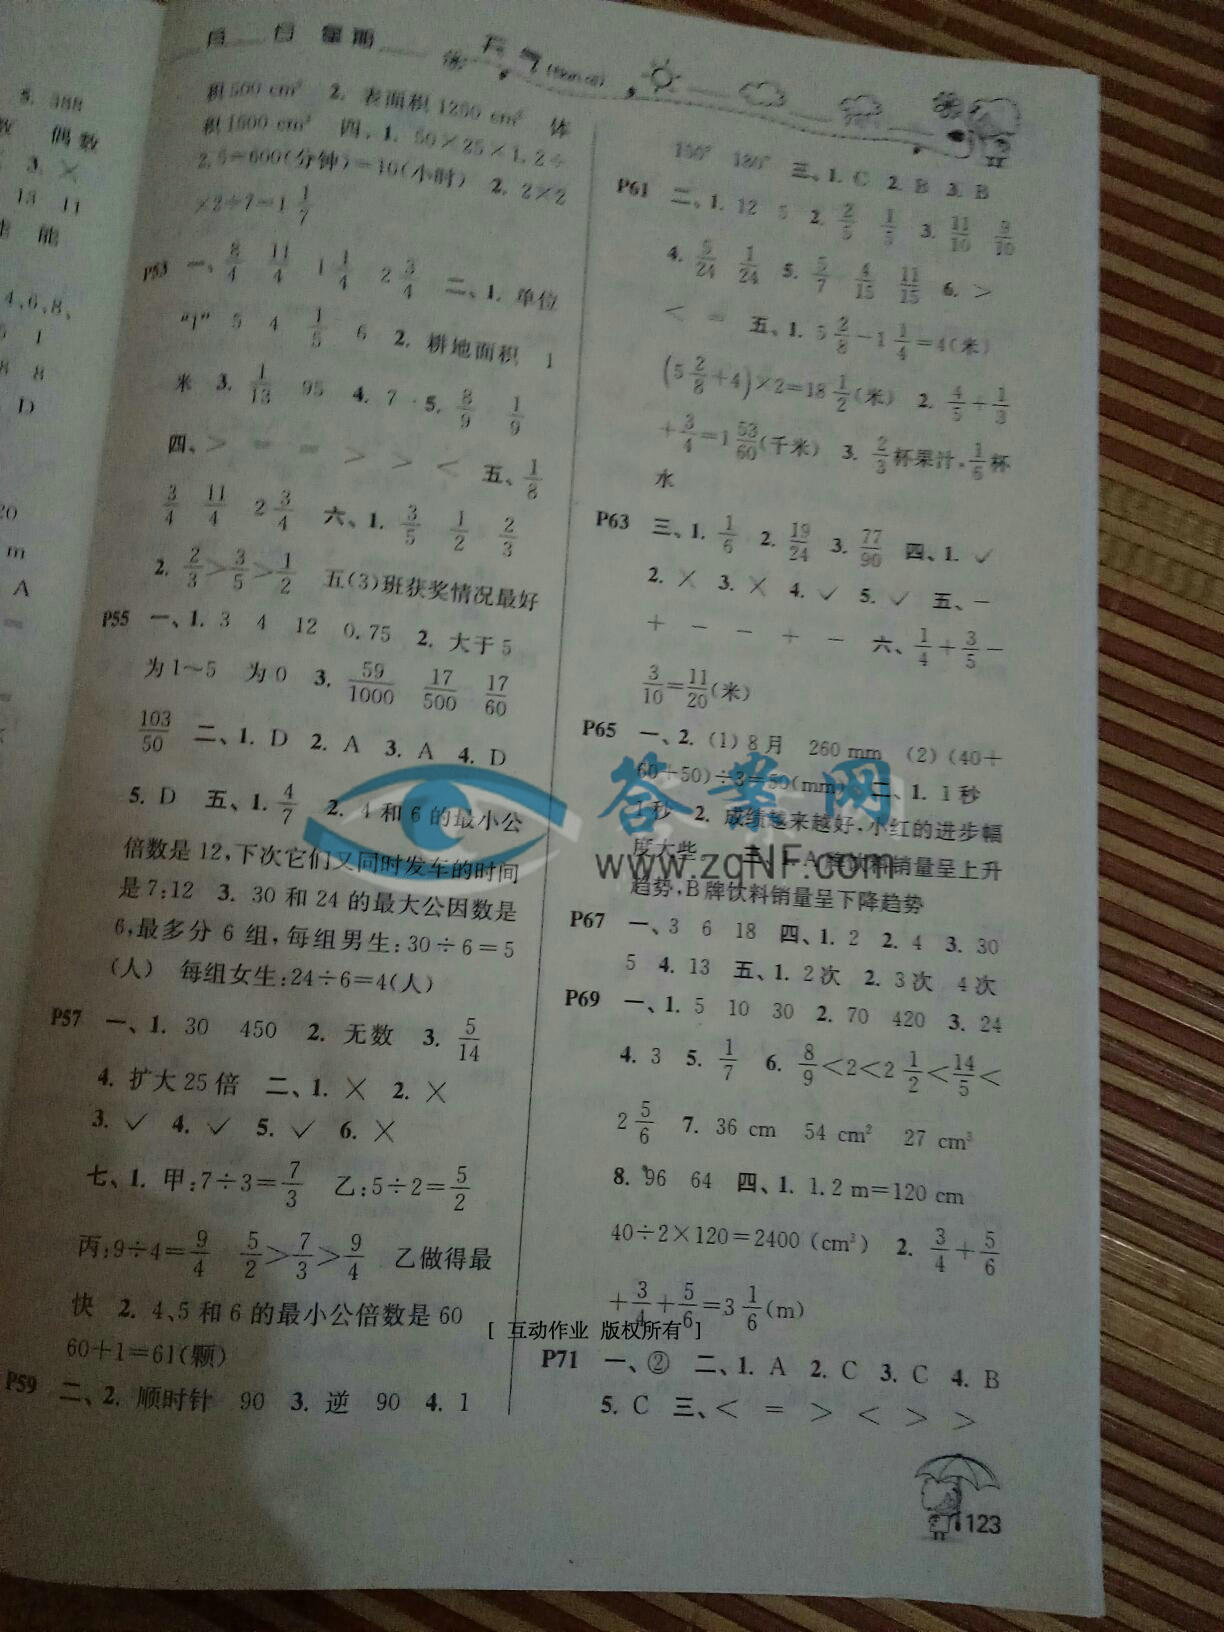 月 日 星期 天气
5. 388
偶数
3. ×
13 11
能
4,6,8、
1
8 8
D
m
A
积500 cm³ 2. 表面积1250 cm² 体
积1500 cm³ 四、1. 50×25×1.2÷
2.5=600(分钟)=10(小时) 2. 2×2
×2÷7=1 1/7
P53 一、8/4 11/4 1 1/4 2 3/4 二、1. 单位
“1” 5 4 1/5 6 2. 耕地面积 1
米 3. 1/13 95 4. 7 5. 8/9 1/9
四、> = = > > < 五、1/8
3/4 11/4 2 3/4 六、1. 3/5 1/2 2/3
2. 2/3>3/5>1/2 五(3)班获奖情况最好
P55 一、1. 3 4 12 0.75 2. 大于5
为1～5 为0 3. 59/1000 17/500 17/60
103/50 二、1. D 2. A 3. A 4. D
5. D 五、1. 4/7 2. 4和6的最小公
倍数是12,下次它们又同时发车的时间
是7:12 3. 30和24的最大公因数是
6,最多分6组,每组男生:30÷6=5
(人) 每组女生:24÷6=4(人)
P57 一、1. 30 450 2. 无数 3. 5/14
4. 扩大25倍 二、1. × 2. ×
3. ✓ 4. ✓ 5. ✓ 6. ×
七、1. 甲:7÷3=7/3 乙:5÷2=5/2
丙:9÷4=9/4 5/2>7/3>9/4 乙做得最
快 2. 4、5和6的最小公倍数是60
60+1=61(颗)
P59 二、2. 顺时针 90 3. 逆 90 4. 1
180° 三、1. C 2. B 3. B
P61 二、1. 12 5 2. 2/5 1/5 3. 11/10 9/10
4. 5/24 1/24 5. 5/7 4/15 11/15 6. >
< = 五、1. 5 2/8-1 1/4=4(米)
(5 2/8+4)×2=18 1/2(米) 2. 4/5+1/3
+3/4=1 53/60(千米) 3. 2/3杯果汁,1/6杯
水
P63 三、1. 1/6 2. 19/24 3. 77/90 四、1. ✓
2. × 3. × 4. ✓ 5. ✓ 五、-
+ - - + - 六、1/4+3/5-
3/10=11/20(米)
P65 一、2. (1)8月 260 mm (2)(40+
60+50)÷3=50(mm) 二、1. 1秒
1秒 2. 成绩越来越好,小红的进步幅
度大些 三、1. A牌饮料销量呈上升
趋势,B牌饮料销量呈下降趋势
P67 一、3 6 18 四、1. 2 2. 4 3. 30
5 4. 13 五、1. 2次 2. 3次 4次
P69 一、1. 5 10 30 2. 70 420 3. 24
4. 3 5. 1/7 6. 8/9<2<2 1/2<14/5<
2 5/6 7. 36 cm 54 cm² 27 cm³
8. 96 64 四、1. 1.2 m=120 cm
40÷2×120=2400 (cm³) 2. 3/4+5/6
+3/4+5/6=3 1/6(m)
P71 一、② 二、1. A 2. C 3. C 4. B
5. C 三、< = > < > >
123
答案网
www.zqNF.com
[ 互动作业 版权所有 ]